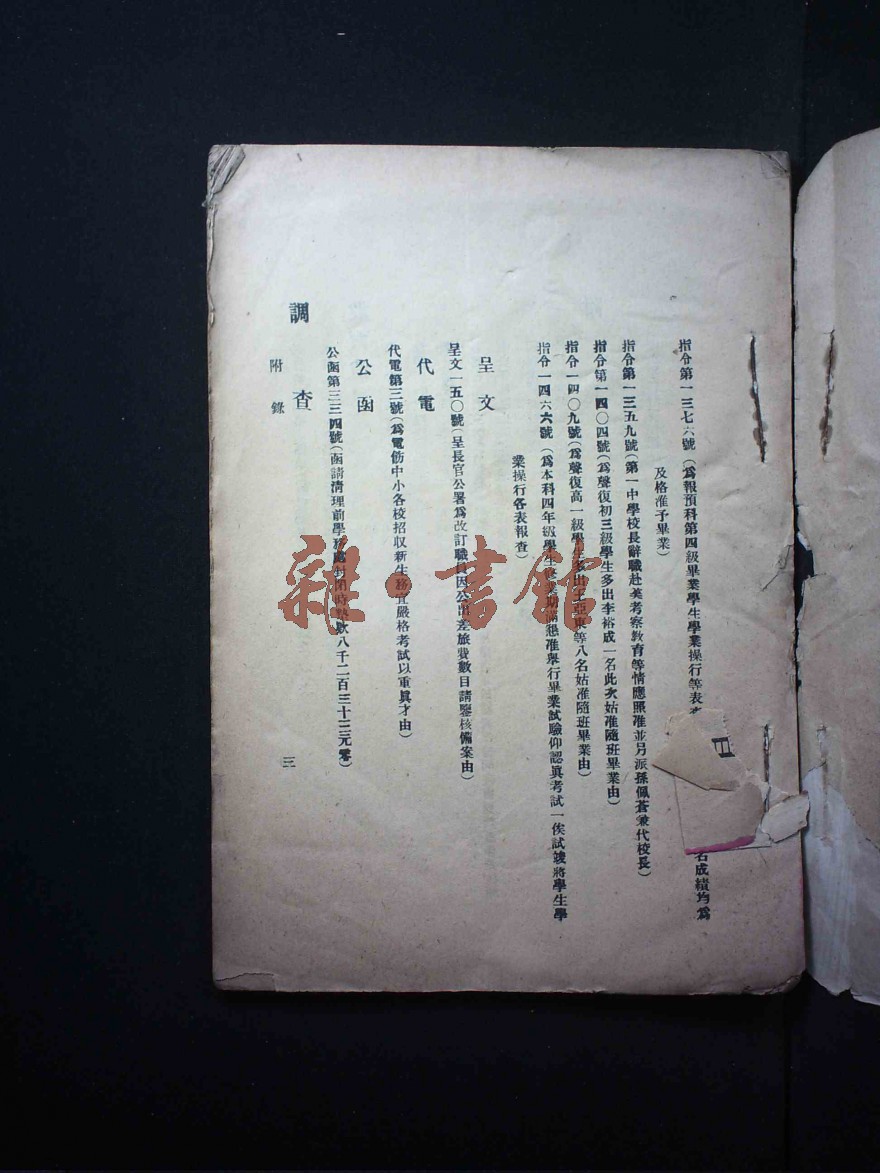 指令第一三七六號(爲報預科第四級畢業學生學業操行等表查 名成績均爲
及格准予畢業)
指令第一三五九號(第一中學校長辭職赴英考察敎育等情應照准並另派孫佩蒼兼代校長)
指令第一四〇四號(爲聲復初三級學生多出李裕成一名此次姑准隨班畢業由)
指令一四〇九號(爲聲復高一級學生多出王亞東等八名姑准隨班畢業由)
指令一四六六號(爲本科四年級學生修業期滿懇准舉行畢業試驗仰認眞考試一俟試竣將學生學
業操行各表報查)
呈文
呈文一五〇號(呈長官公署爲改訂職員因公出差旅費數目請鑒核備案由)
代電
代電第三號(爲電飭中小各校招収新生務宜嚴格考試以重眞才由)
公函
公函第三三四號(函請淸理前學務處封閉時墊欵八千二百三十三元零)
調查
附錄
三
雜·書館